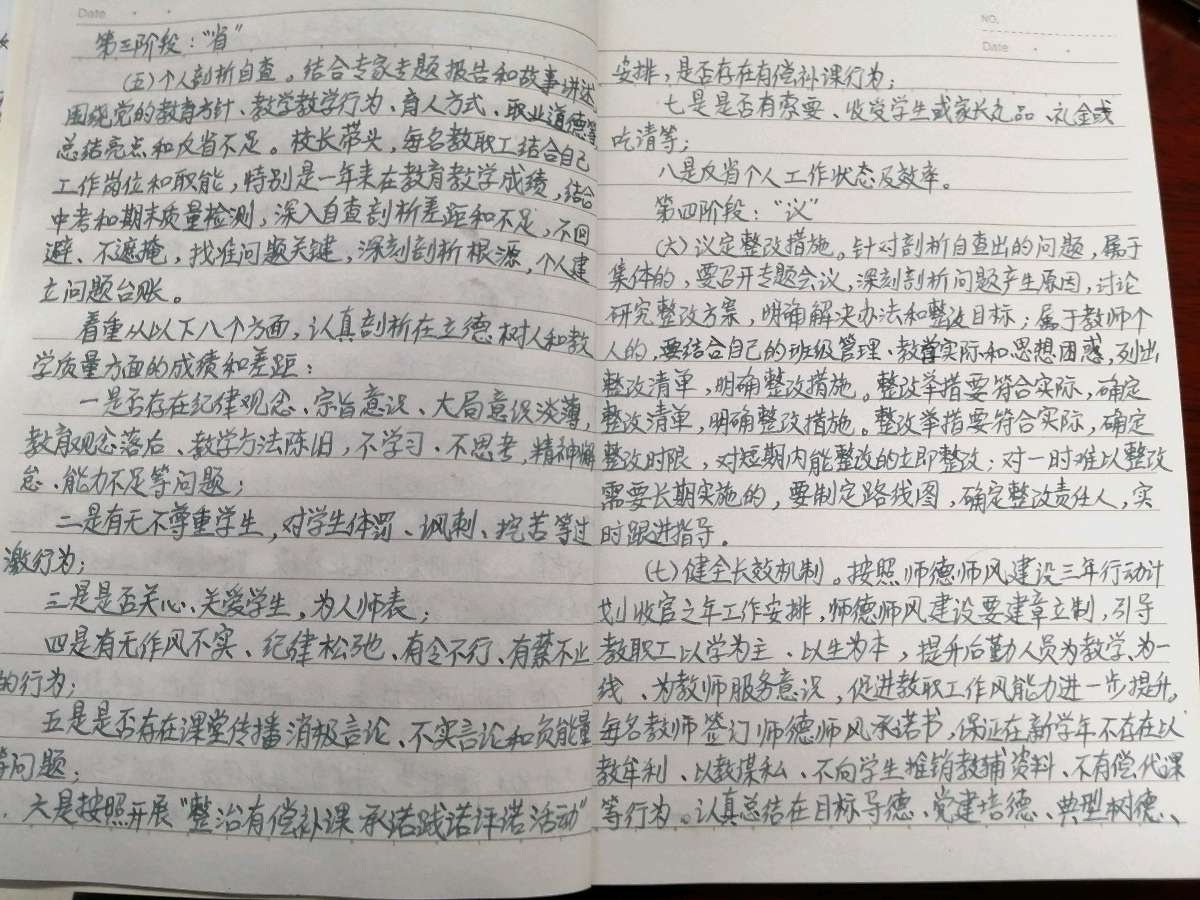 Date
第三阶段："省"
(五)个人剖析自查。结合专家专题报告和故事讲述
围绕党的教育方针、教学教学行为、育人方式、职业道德等
总结亮点和反省不足。校长带头，每名教职工结合自己
工作岗位和职能，特别是一年来在教育教学成绩，结合
中考和期末质量检测，深入自查剖析差距和不足，不回
避、不遮掩，找准问题关键，深刻剖析根源，个人建
立问题台账。
着重从以下八个方面，认真剖析在立德树人和教
学质量方面的成绩和差距：
一是否存在纪律观念、宗旨意识、大局意识淡薄，
教育观念落后、教学方法陈旧，不学习、不思考，精神懈
怠、能力不足等问题；
二是有无不尊重学生，对学生体罚、讽刺、挖苦等过
激行为；
三是是否关心、关爱学生，为人师表；
四是有无作风不实、纪律松弛、有令不行、有禁不止
的行为；
五是是否存在课堂传播消极言论、不实言论和负能量
等问题；
六是按照开展"整治有偿补课 承诺践诺评诺活动"
NO.
Date
安排，是否存在有偿补课行为；
七是是否有索要、收受学生或家长礼品、礼金或
吃请等；
八是反省个人工作状态及效率。
第四阶段："议"
(六)议定整改措施。针对剖析自查出的问题，属于
集体的，要召开专题会议，深刻剖析问题产生原因，讨论
研究整改方案，明确解决办法和整改目标；属于教师个
人的，要结合自己的班级管理、教育实际和思想困惑，列出
整改清单，明确整改措施。整改举措要符合实际，确定
整改清单，明确整改措施。整改举措要符合实际，确定
整改时限，对短期内能整改的立即整改；对一时难以整改
需要长期实施的，要制定路线图，确定整改责任人，实
时跟进指导。
(七)健全长效机制。按照师德师风建设三年行动计
划收官之年工作安排，师德师风建设要建章立制，引导
教职工以学为主、以生为本，提升后勤人员为教学、为一
线、为教师服务意识，促进教职工作风能力进一步提升。
每名教师签订师德师风承诺书，保证在新学年不存在以
教牟利、以教谋私、不向学生推销教辅资料、不有偿代课
等行为。认真总结在目标导德、党建培德、典型树德、